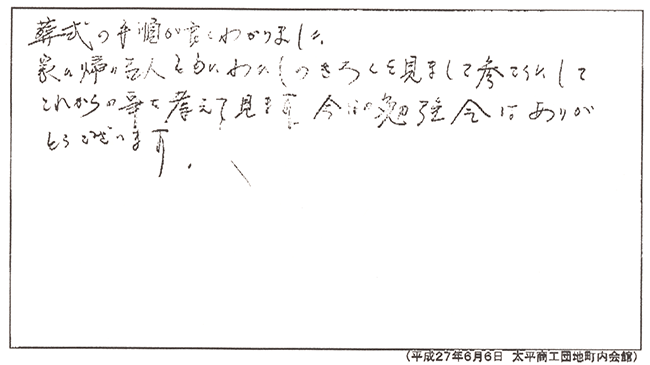 葬式の手順が良くわかりました
家に帰り主人ともにわたしのきろくを見まして参考にして
これからの事を考えて見ます 今日の勉強会はありが
とうございます.
(平成27年6月6日 太平商工団地町内会館)